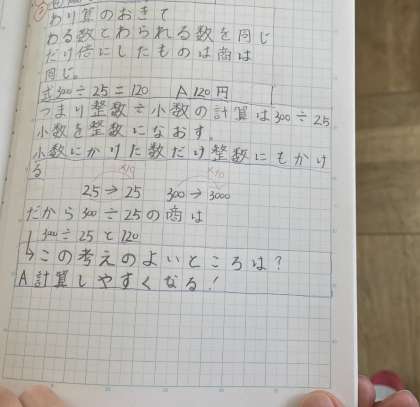 わり算のおきて
わる数とわられる数を同じ
だけ倍にしたものは商は
同じ。
式300÷2.5=120 A120円
つまり整数÷小数の計算は300÷2.5
小数を整数になおす。
小数にかけた数だけ整数にもかけ
る
×10 ×10
2.5→25 300→3000
だから300÷2.5の商は
300÷2.5と120
↳この考えのよいところは?
A計算しやすくなる!